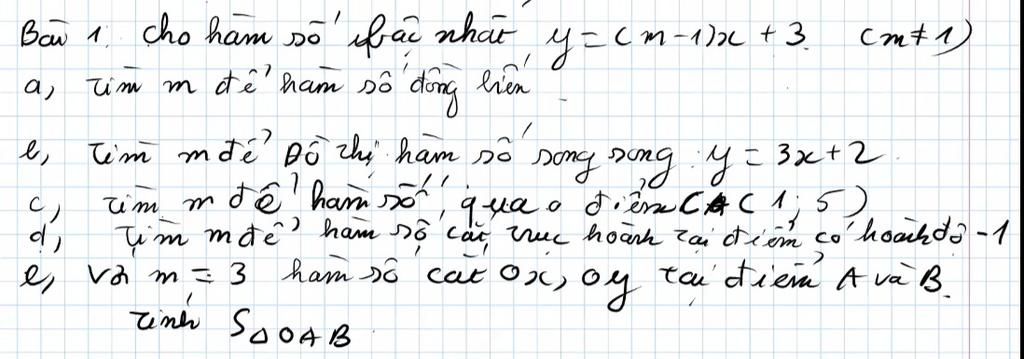 Bài 1: Cho hàm số bậc nhất y = (m-1)x + 3 (m ≠ 1)
a, Tìm m để hàm số đồng biến
b, Tìm m để Đồ thị hàm số song song y = 3x + 2
c, Tìm m để hàm số qua điểm A (1; 5)
d, Tìm m để hàm số cắt trục hoành tại điểm có hoành độ -1
e, Với m = 3 hàm số cắt Ox, Oy tại điểm A và B.
Tính S△OAB